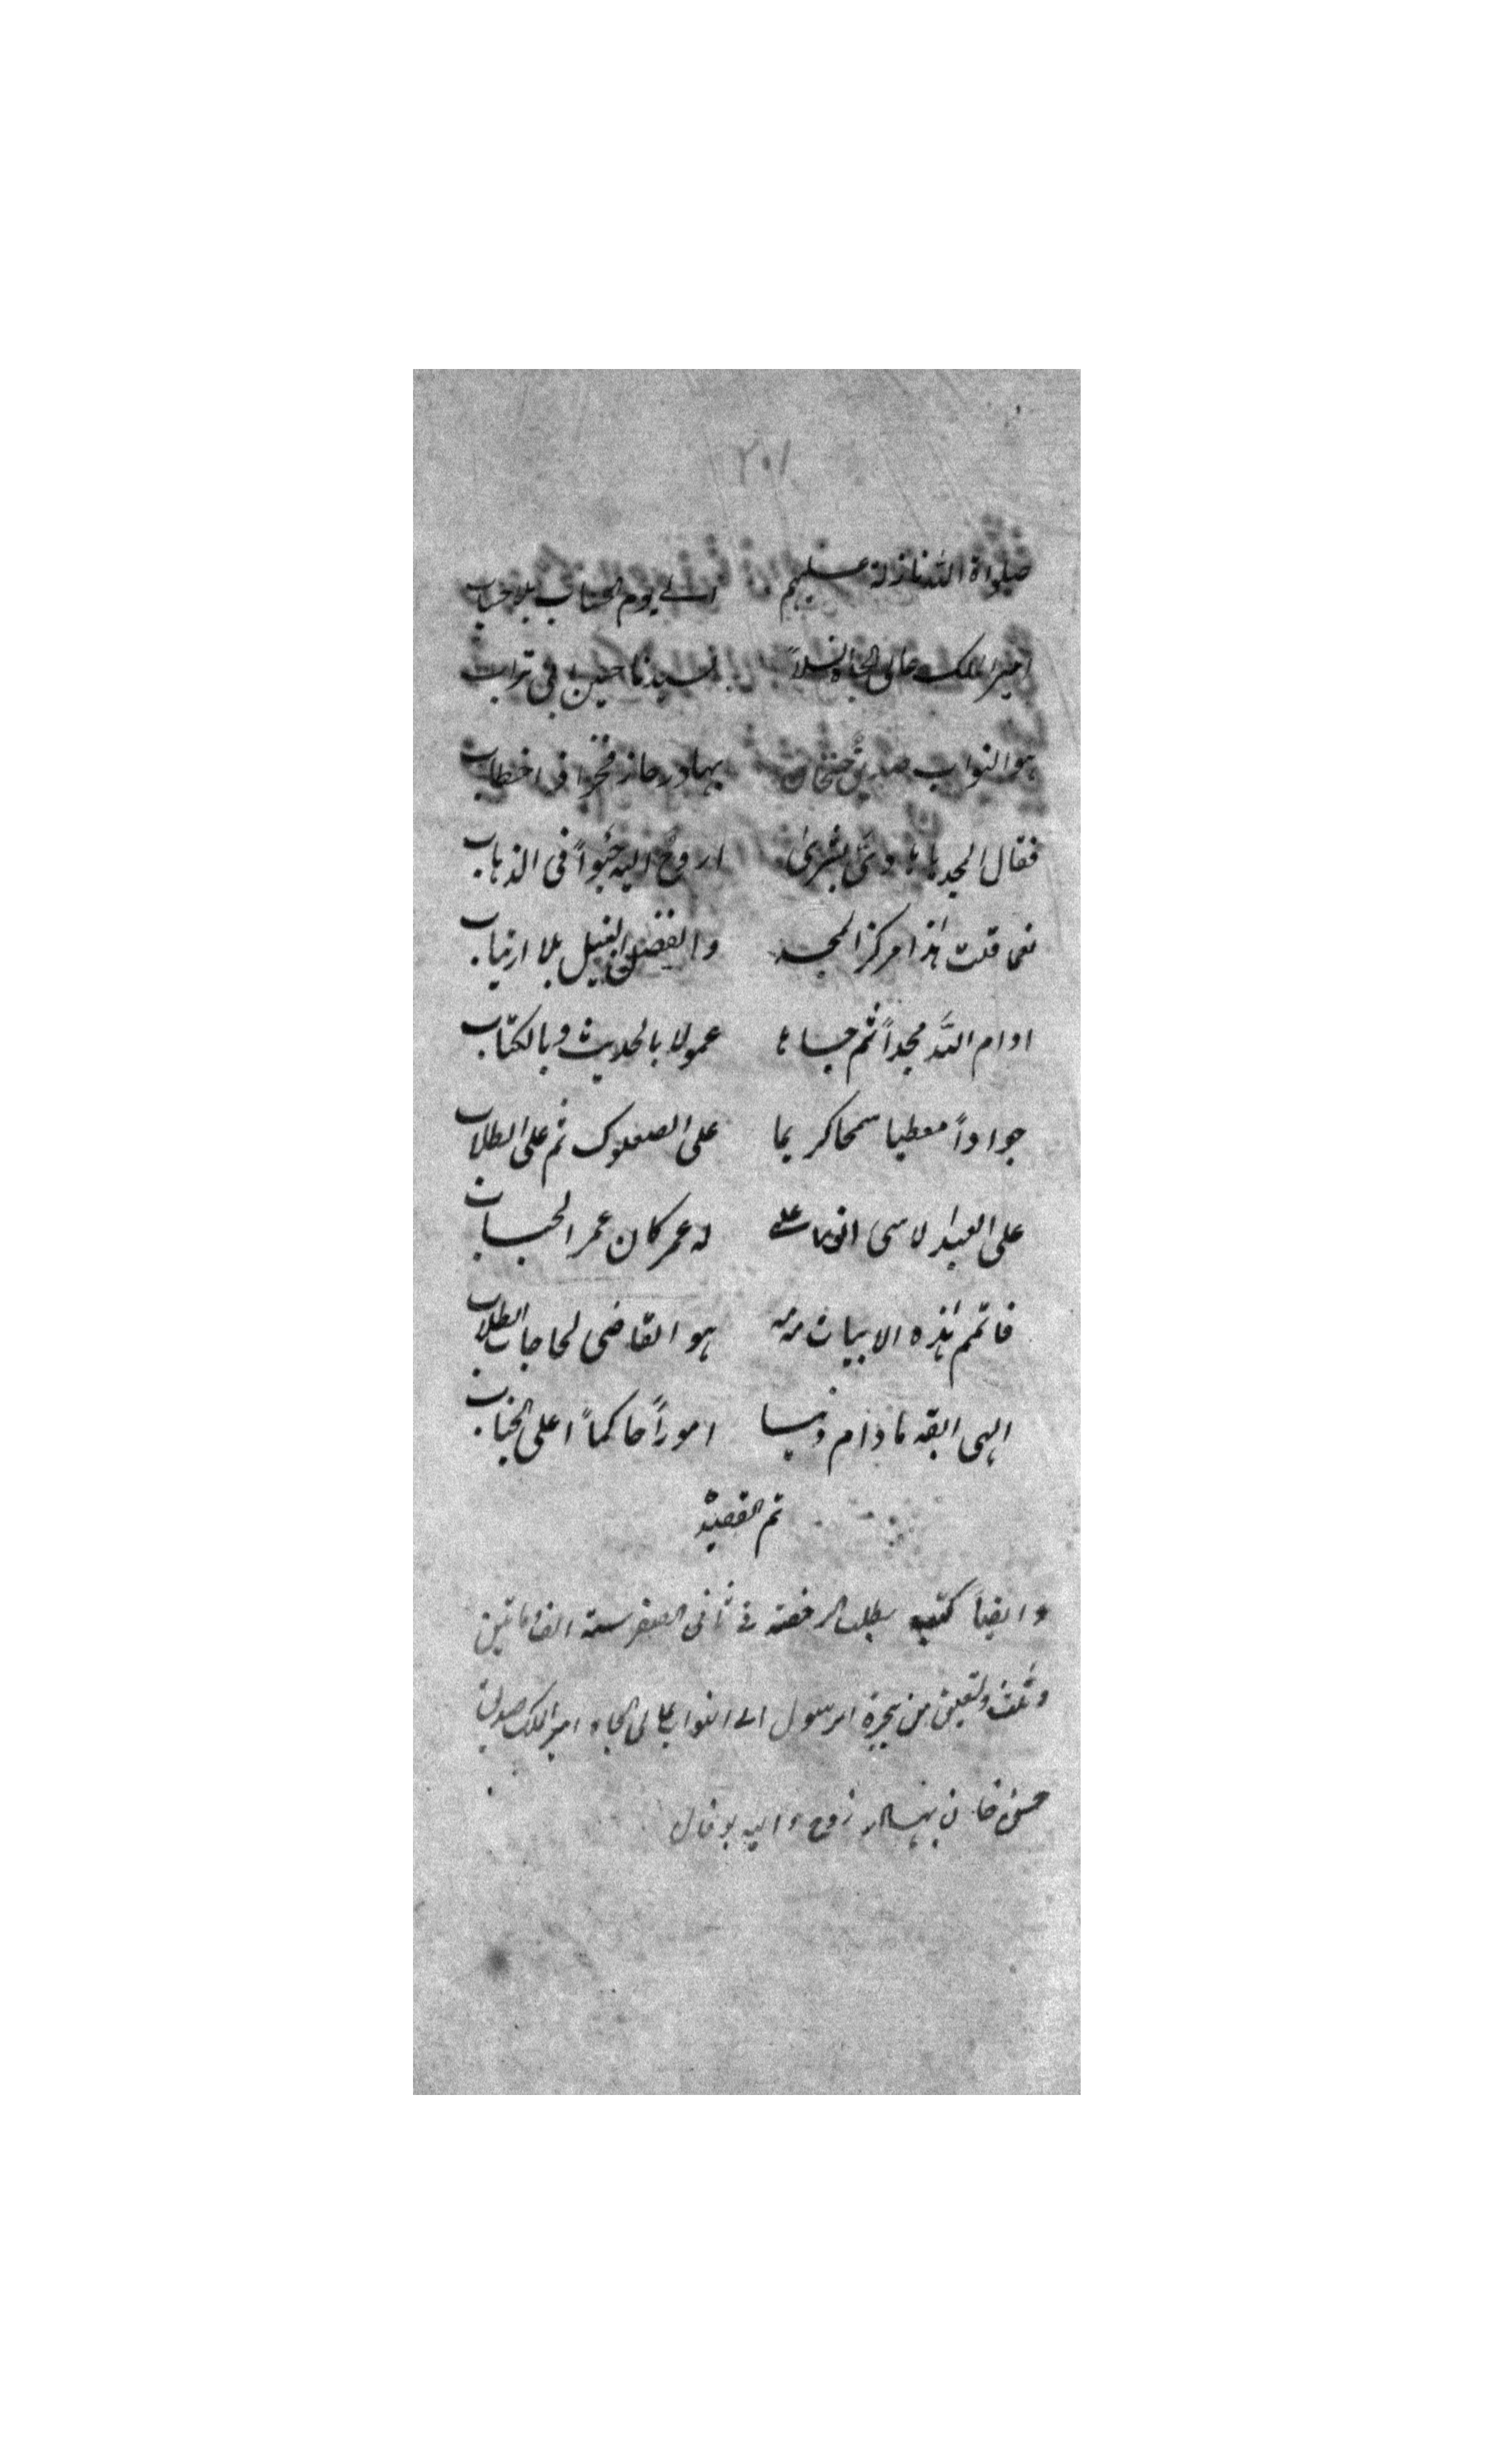 ٢٠١
صلواة الله نازلة عليهم الى يوم الحساب بلا حساب
امير الملك عالى الجاه نسلاً لسيدنا حسين ابى تراب
هو النواب صديق حسنخان بهادر حاز فخرا فى اخطاب
فقال المجد ها ها وتى بشرىٰ اروح اليه حبواً فى الذهاب
نعما قلت هٰذا مركز المجد والفضل النبيل بلا ارتياب
ادام الله مجداً ثم جاها عمولا بالحديث وبالكتاب
جواداً معطيا سمحا كريما على الصعلوك ثم على الطلاب
على العبد لاسى له عمر كان عمر الحباب
فاتمم هٰذه الابيات منه هو القاضى لحاجات الطلاب
الهى ابقه مادام دنيا اموراً حاكماً اعلى الجناب
تم القصيد
وايضاً كتب بطلب الرخصته فى ثانى الصفر سنه الف وماتين
وثلث وتسعين من هجرة الرسول الى النواب عالى الجاه امير الملك صديق
حسن خان بهادر زوج واليه بوفال